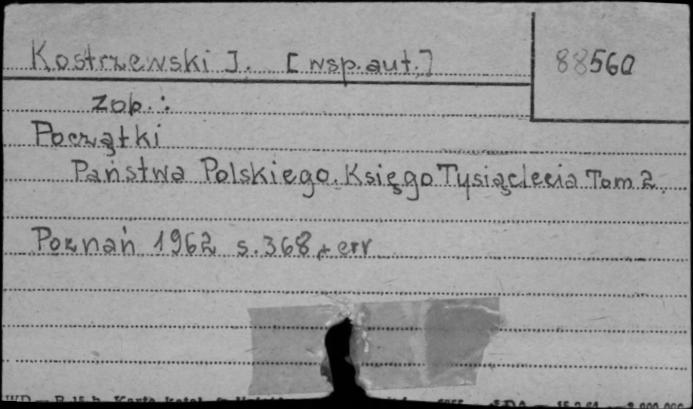 Kostrzewski J. [wsp.aut.] 88560
zob.:
Początki
Państwa Polskiego. Księgo Tysiąclecia Tom 2.
Poznań 1962 s. 368, + err